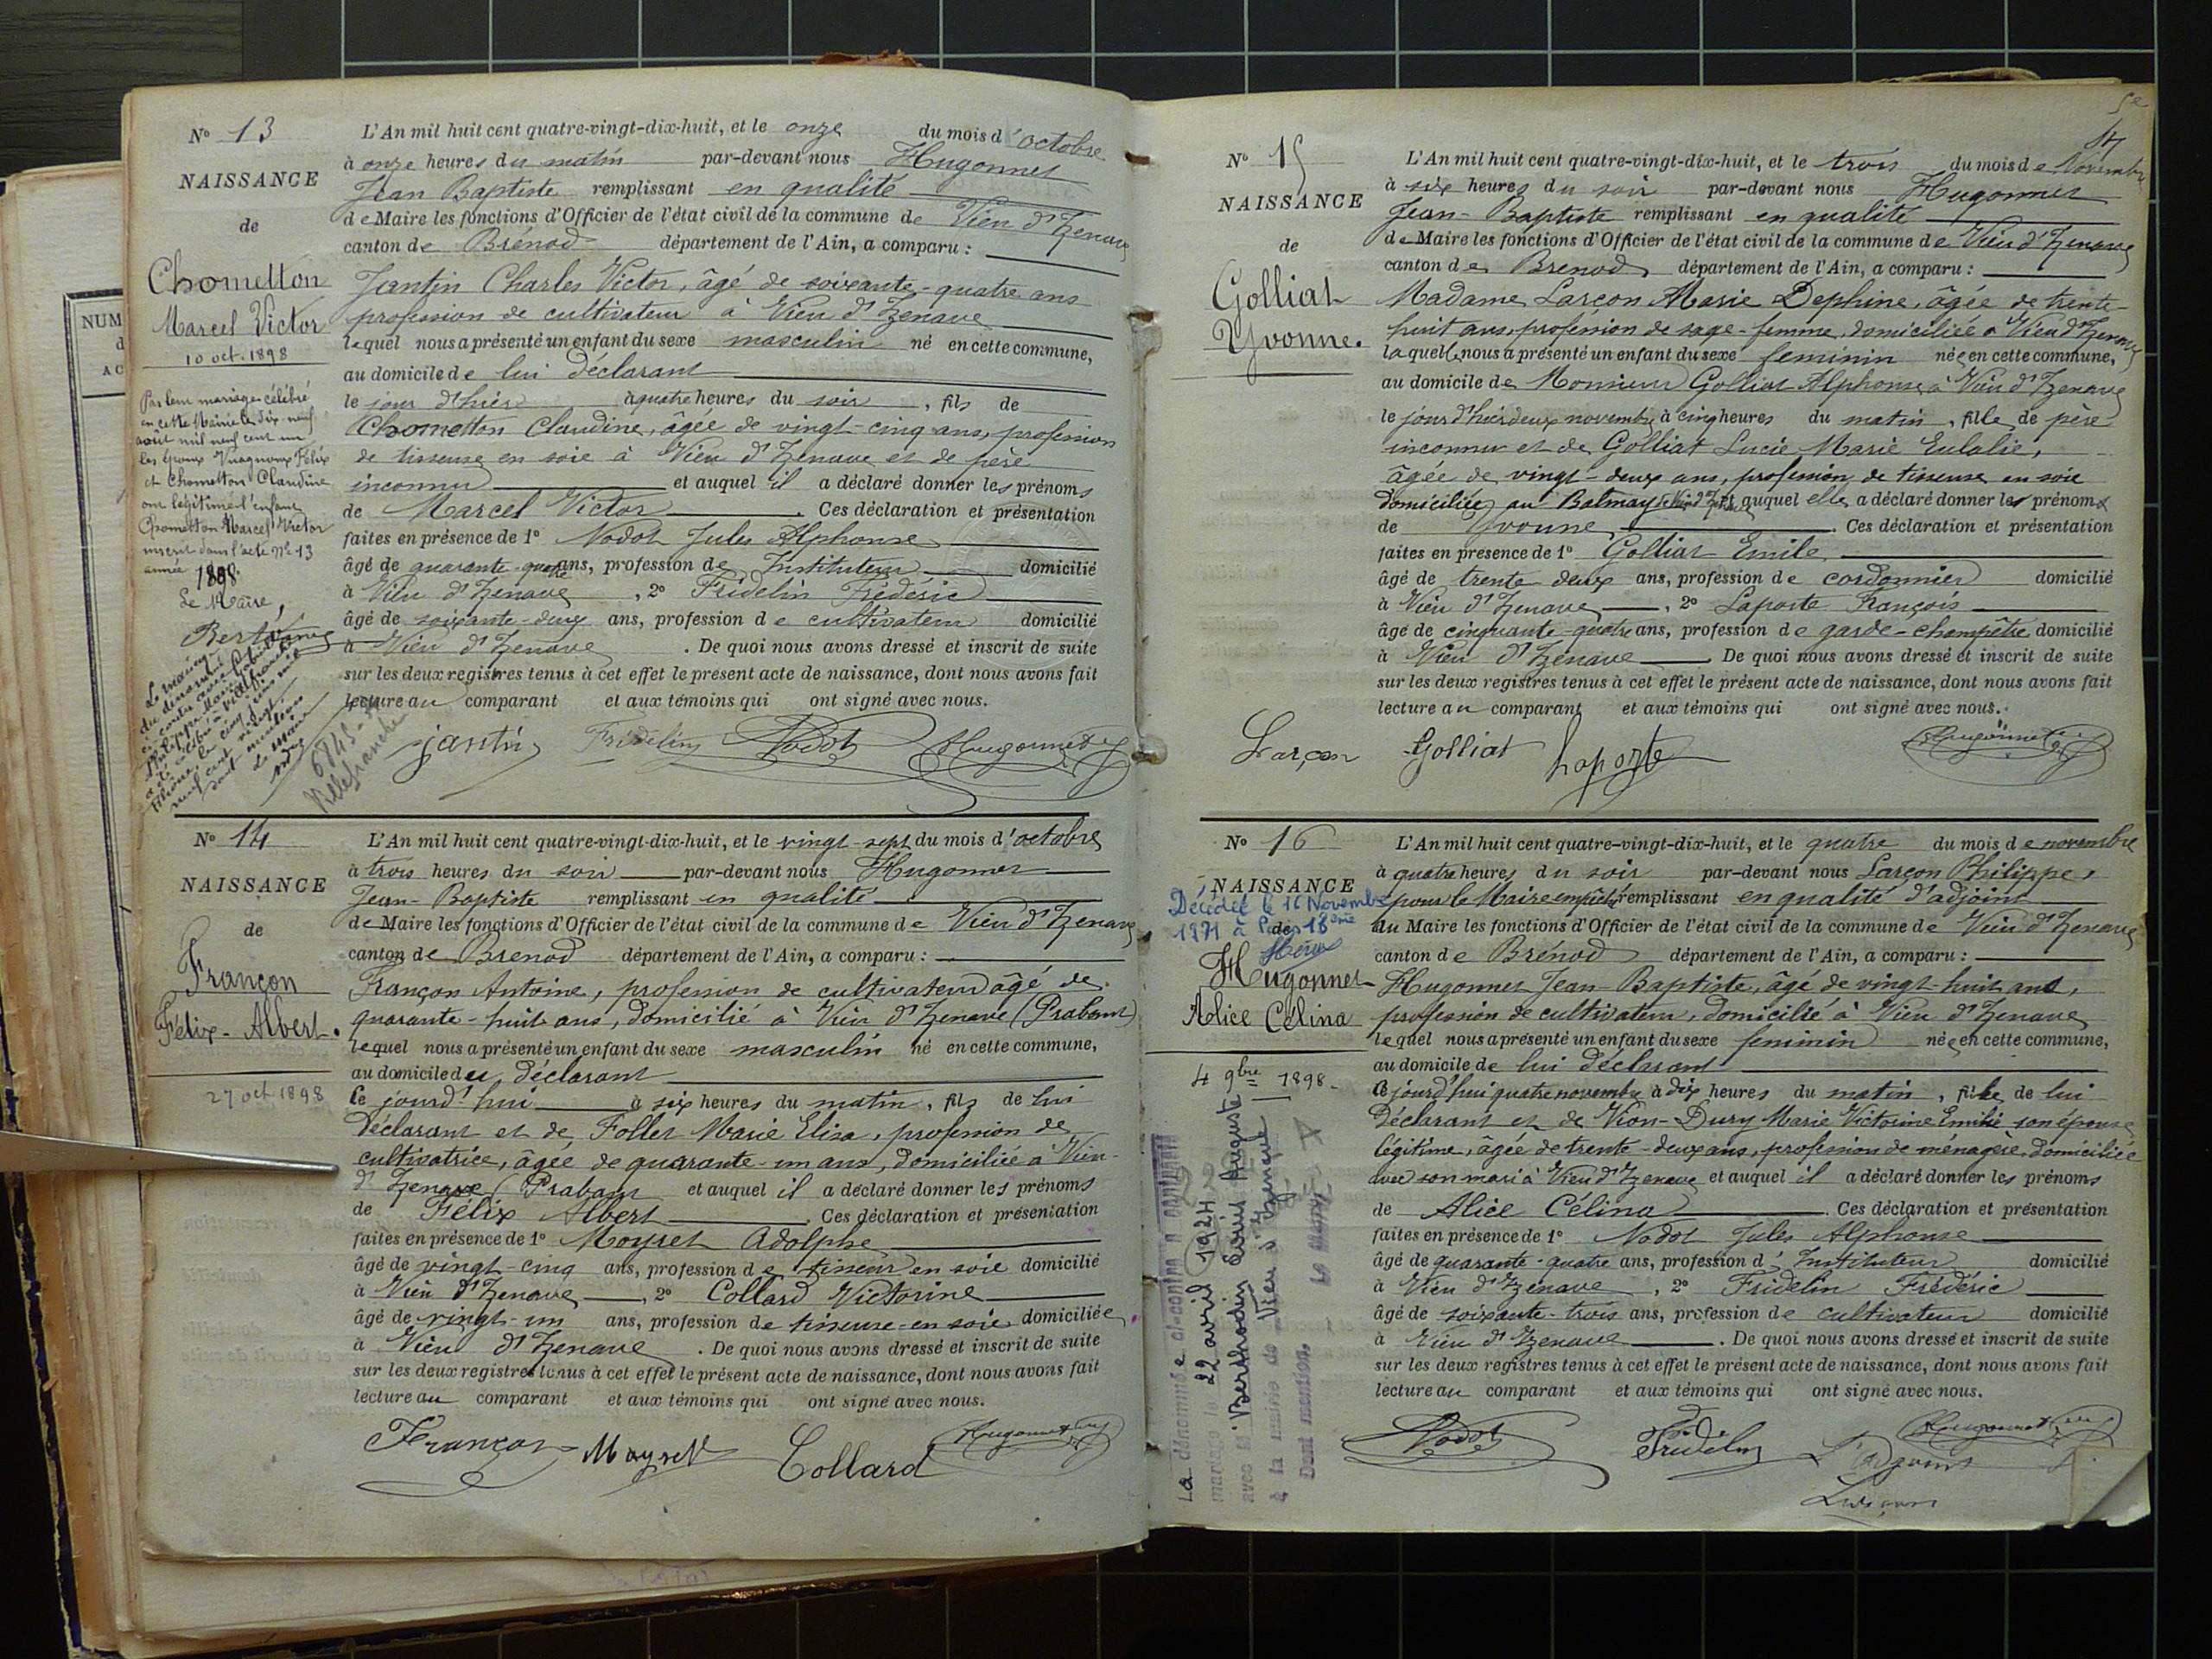 N° 13
NAISSANCE
de
Chometton
Marcel Victor
10 oct. 1898
Par leur mariage célébré
en cette Mairie le dix neuf
août mil neuf cent un
les époux Vuagnoux Félix
et Chometton Claudine
ont légitimé l'enfant
Chometton Marcel Victor
inscrit dans l'acte N° 13
année 1898.
Le Maire,
6845
Villefranche
L'An mil huit cent quatre-vingt-dix-huit, et le onze du mois d'octobre
à onze heures du matin par-devant nous Hugonnet
Jean Baptiste remplissant en qualité
de Maire les fonctions d'Officier de l'état civil de la commune de Vieu d'Izenave
canton de Brénod département de l'Ain, a comparu :
Jantin Charles Victor, âgé de soixante-quatre ans
profession de cultivateur à Vieu d'Izenave
lequel nous a présenté un enfant du sexe masculin né en cette commune,
au domicile de lui déclarant
le jour d'hier à quatre heures du soir, fils de
Chometton Claudine, âgée de vingt-cinq ans, profession
de tisseuse en soie à Vieu d'Izenave et de père
inconnu et auquel il a déclaré donner les prénoms
de Marcel Victor. Ces déclaration et présentation
faites en présence de 1° Nodot Jules Alphonse
âgé de quarante-quatre ans, profession de Instituteur domicilié
à Vieu d'Izenave, 2° Fridelin Frédéric
âgé de soixante-deux ans, profession de cultivateur domicilié
à Vieu d'Izenave. De quoi nous avons dressé et inscrit de suite
sur les deux registres tenus à cet effet le présent acte de naissance, dont nous avons fait
lecture au comparant et aux témoins qui ont signé avec nous.
Jantin Fridelin Nodot Hugonnet
N° 14
NAISSANCE
de
Françon
Félix-Albert.
27 oct. 1898
L'An mil huit cent quatre-vingt-dix-huit, et le vingt-sept du mois d'octobre
à trois heures du soir par-devant nous Hugonnet
Jean-Baptiste remplissant en qualité
de Maire les fonctions d'Officier de l'état civil de la commune de Vieu d'Izenave
canton de Brenod département de l'Ain, a comparu :
Françon Antoine, profession de cultivateur âgé de
quarante-huit ans, domicilié à Vieu d'Izenave (Prabam)
lequel nous a présenté un enfant du sexe masculin né en cette commune,
au domicile du déclarant
le jourd'hui à six heures du matin, fils de lui
déclarant et de Follet Marie Elisa, profession de
cultivatrice, âgée de quarante-un ans, domiciliée à Vieu-
d'Izenave (Prabam et auquel il a déclaré donner les prénoms
de Félix Albert. Ces déclaration et présentation
faites en présence de 1° Moyret Adolphe
âgé de vingt-cinq ans, profession de tisseur en soie domicilié
à Vieu d'Izenave, 2° Collard Victorine
âgé de vingt-un ans, profession de tisseuse en soie domiciliée
à Vieu d'Izenave. De quoi nous avons dressé et inscrit de suite
sur les deux registres tenus à cet effet le présent acte de naissance, dont nous avons fait
lecture au comparant et aux témoins qui ont signé avec nous.
Françon Moyret Collard Hugonnet
N° 15
NAISSANCE
de
Golliat
Yvonne.
L'An mil huit cent quatre-vingt-dix-huit, et le trois du mois de Novembre
à six heures du soir par-devant nous Hugonnet
Jean-Baptiste remplissant en qualité
de Maire les fonctions d'Officier de l'état civil de la commune de Vieu d'Izenave
canton de Brenod département de l'Ain, a comparu :
Madame Larçon Marie Dephine, âgée de trente-
huit ans, profession de sage-femme, domiciliée à Vieu d'Izenave
laquelle nous a présenté un enfant du sexe feminin née en cette commune,
au domicile de Monsieur Golliat Alphonse à Vieu d'Izenave
le jour d'hier deux novembre à cinq heures du matin, fille de père
inconnu et de Golliat Lucie Marie Eulalie,
âgée de vingt-deux ans, profession de tisseuse en soie
domiciliée au Balmay auquel elle a déclaré donner les prénoms
de Yvonne. Ces déclaration et présentation
faites en présence de 1° Golliat Emile
âgé de trente deux ans, profession de cordonnier domicilié
à Vieu d'Izenave, 2° Laporte François
âgé de cinquante-quatre ans, profession de garde-champêtre domicilié
à Vieu d'Izenave. De quoi nous avons dressé et inscrit de suite
sur les deux registres tenus à cet effet le présent acte de naissance, dont nous avons fait
lecture au comparant et aux témoins qui ont signé avec nous.
Larçon Golliat Laporte Hugonnet
N° 16
NAISSANCE
de
Décédée le 16 Novembre
1971 à Paris 18ème
Hugonnet
Alice Célina
4 9bre 1898.
La dénommée ci-contre a contracté
mariage le 22 avril 1924
avec M. Berthodin Louis Auguste
à la mairie de Vieu d'Izenave
Dont mention, Le Maire
L'An mil huit cent quatre-vingt-dix-huit, et le quatre du mois de novembre
à quatre heures du soir par-devant nous Larçon Philippe,
pour le Maire empêché remplissant en qualité d'adjoint
au Maire les fonctions d'Officier de l'état civil de la commune de Vieu d'Izenave
canton de Brénod département de l'Ain, a comparu :
Hugonnet Jean-Baptiste, âgé de vingt-huit ans,
profession de cultivateur, domicilié à Vieu d'Izenave
lequel nous a présenté un enfant du sexe feminin née en cette commune,
au domicile de lui déclarant
ce jourd'hui quatre novembre à dix heures du matin, fille de lui
déclarant et de Vion-Dury Marie Victorine Emilie son épouse
légitime, âgée de trente-deux ans, profession de ménagère, domiciliée
avec son mari à Vieu d'Izenave et auquel il a déclaré donner les prénoms
de Alice Célina. Ces déclaration et présentation
faites en présence de 1° Nodot Jules Alphonse
âgé de quarante-quatre ans, profession d'Instituteur domicilié
à Vieu d'Izenave, 2° Fridelin Frédéric
âgé de soixante-trois ans, profession de cultivateur domicilié
à Vieu d'Izenave. De quoi nous avons dressé et inscrit de suite
sur les deux registres tenus à cet effet le présent acte de naissance, dont nous avons fait
lecture au comparant et aux témoins qui ont signé avec nous.
Nodot Fridelin Hugonnet
L'adjoint
Larçon